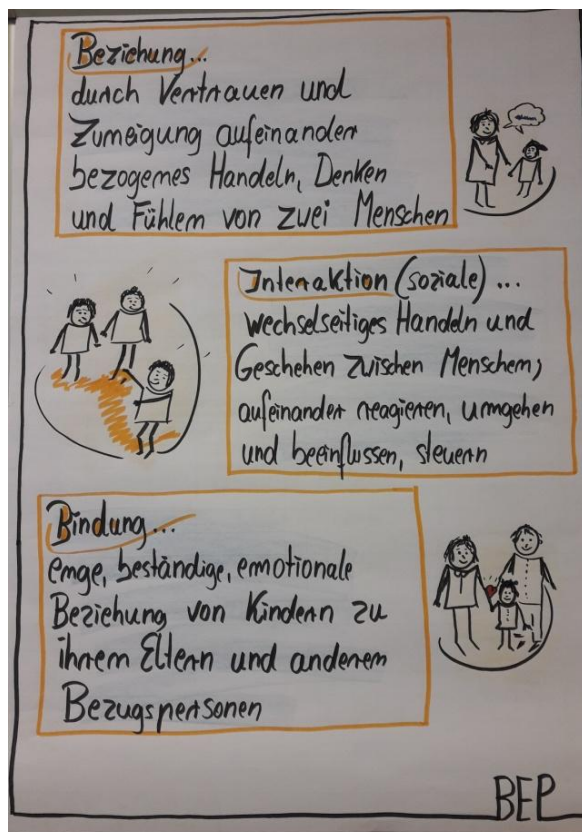 Beziehung...
durch Vertrauen und
Zuneigung aufeinander
bezogenes Handeln, Denken
und Fühlen von zwei Menschen
Interaktion (soziale)...
wechselseitiges Handeln und
Geschehen zwischen Menschen;
aufeinander reagieren, umgehen
und beeinflussen, steuern
Bindung...
enge, beständige, emotionale
Beziehung von Kindern zu
ihren Eltern und anderen
Bezugspersonen
BEP